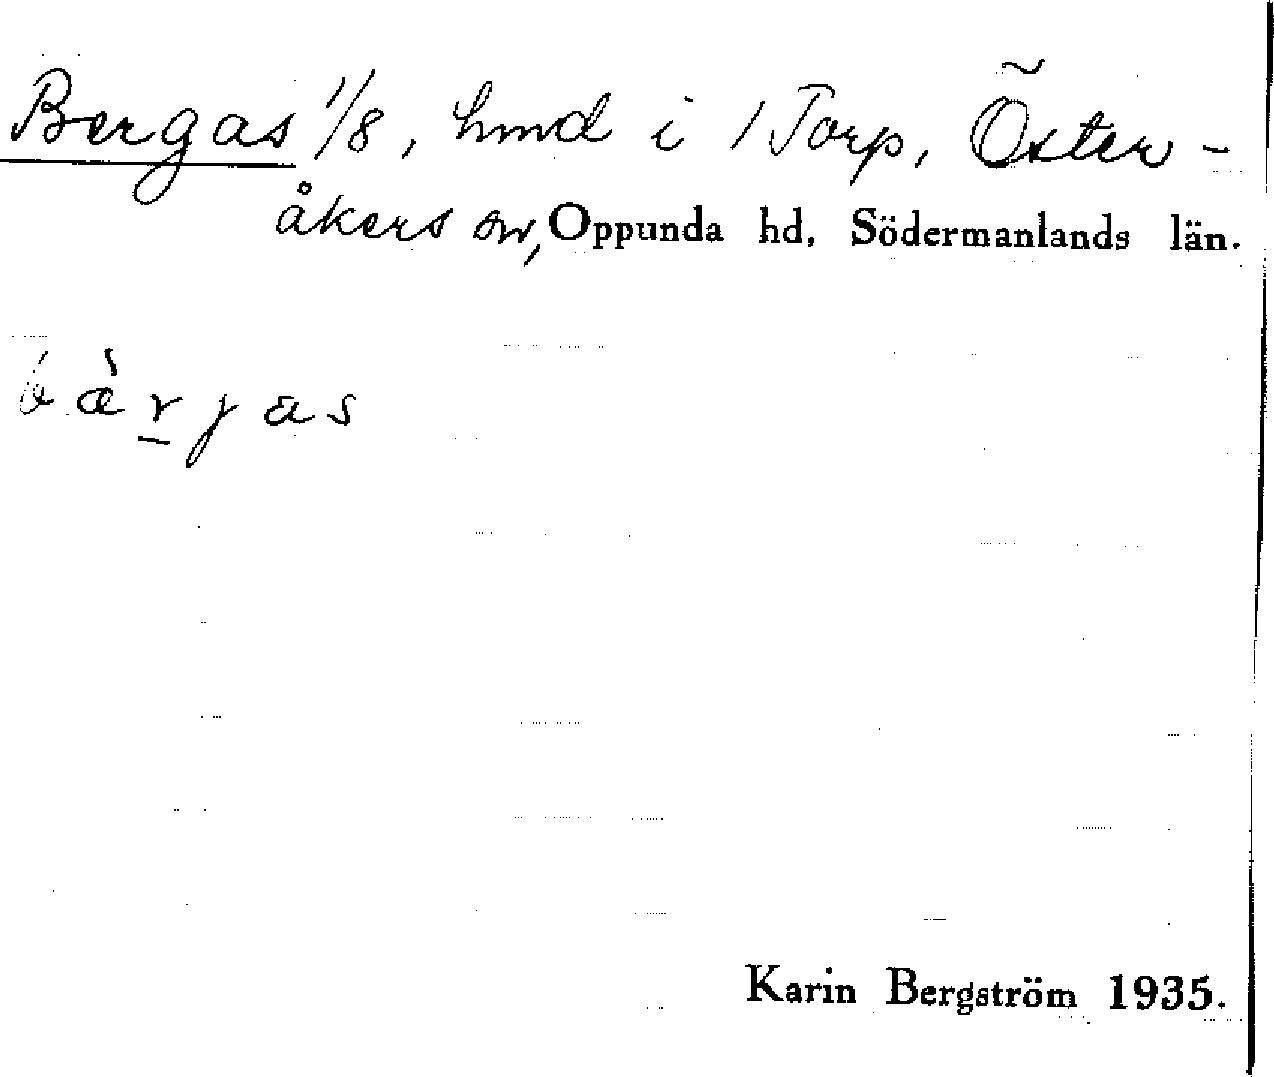 Bergas 1/8, hmd i 1 Torp, Öster-
åkers sn, Oppunda hd, Södermanlands län.
bæ̀rjas
Karin Bergström 1935.